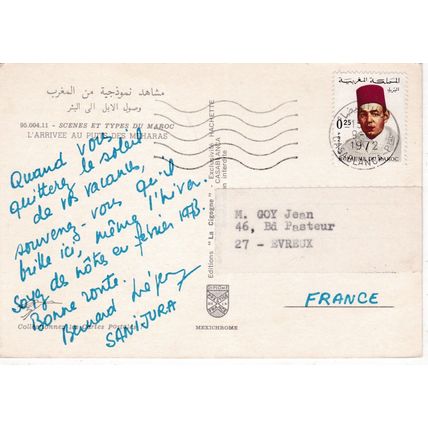 مشاهد نموذجية من المغرب
وصول الابل الى البئر
95.004.11 - SCENES ET TYPES DU MAROC
L'ARRIVEE AU PUITS DES MEHARAS
Quand vous
quitterez le soleil
de vos vacances,
souvenez-vous qu'il
brille ici, même l'hiver.
Soyez des nôtres en février 1973.
Bonne route.
Bernard
SANIJURA
Collectionnez les Cartes Postales
Editions "La Cigogne" - Exclusivité HACHETTE
CASABLANCA
interdite
MEXICHROME
المملكة المغربية
البريد
0.25
ROYAUME DU MAROC
1972
CASABLANCA
M. GOY Jean
46, Bd Pasteur
27 - EVREUX
FRANCE